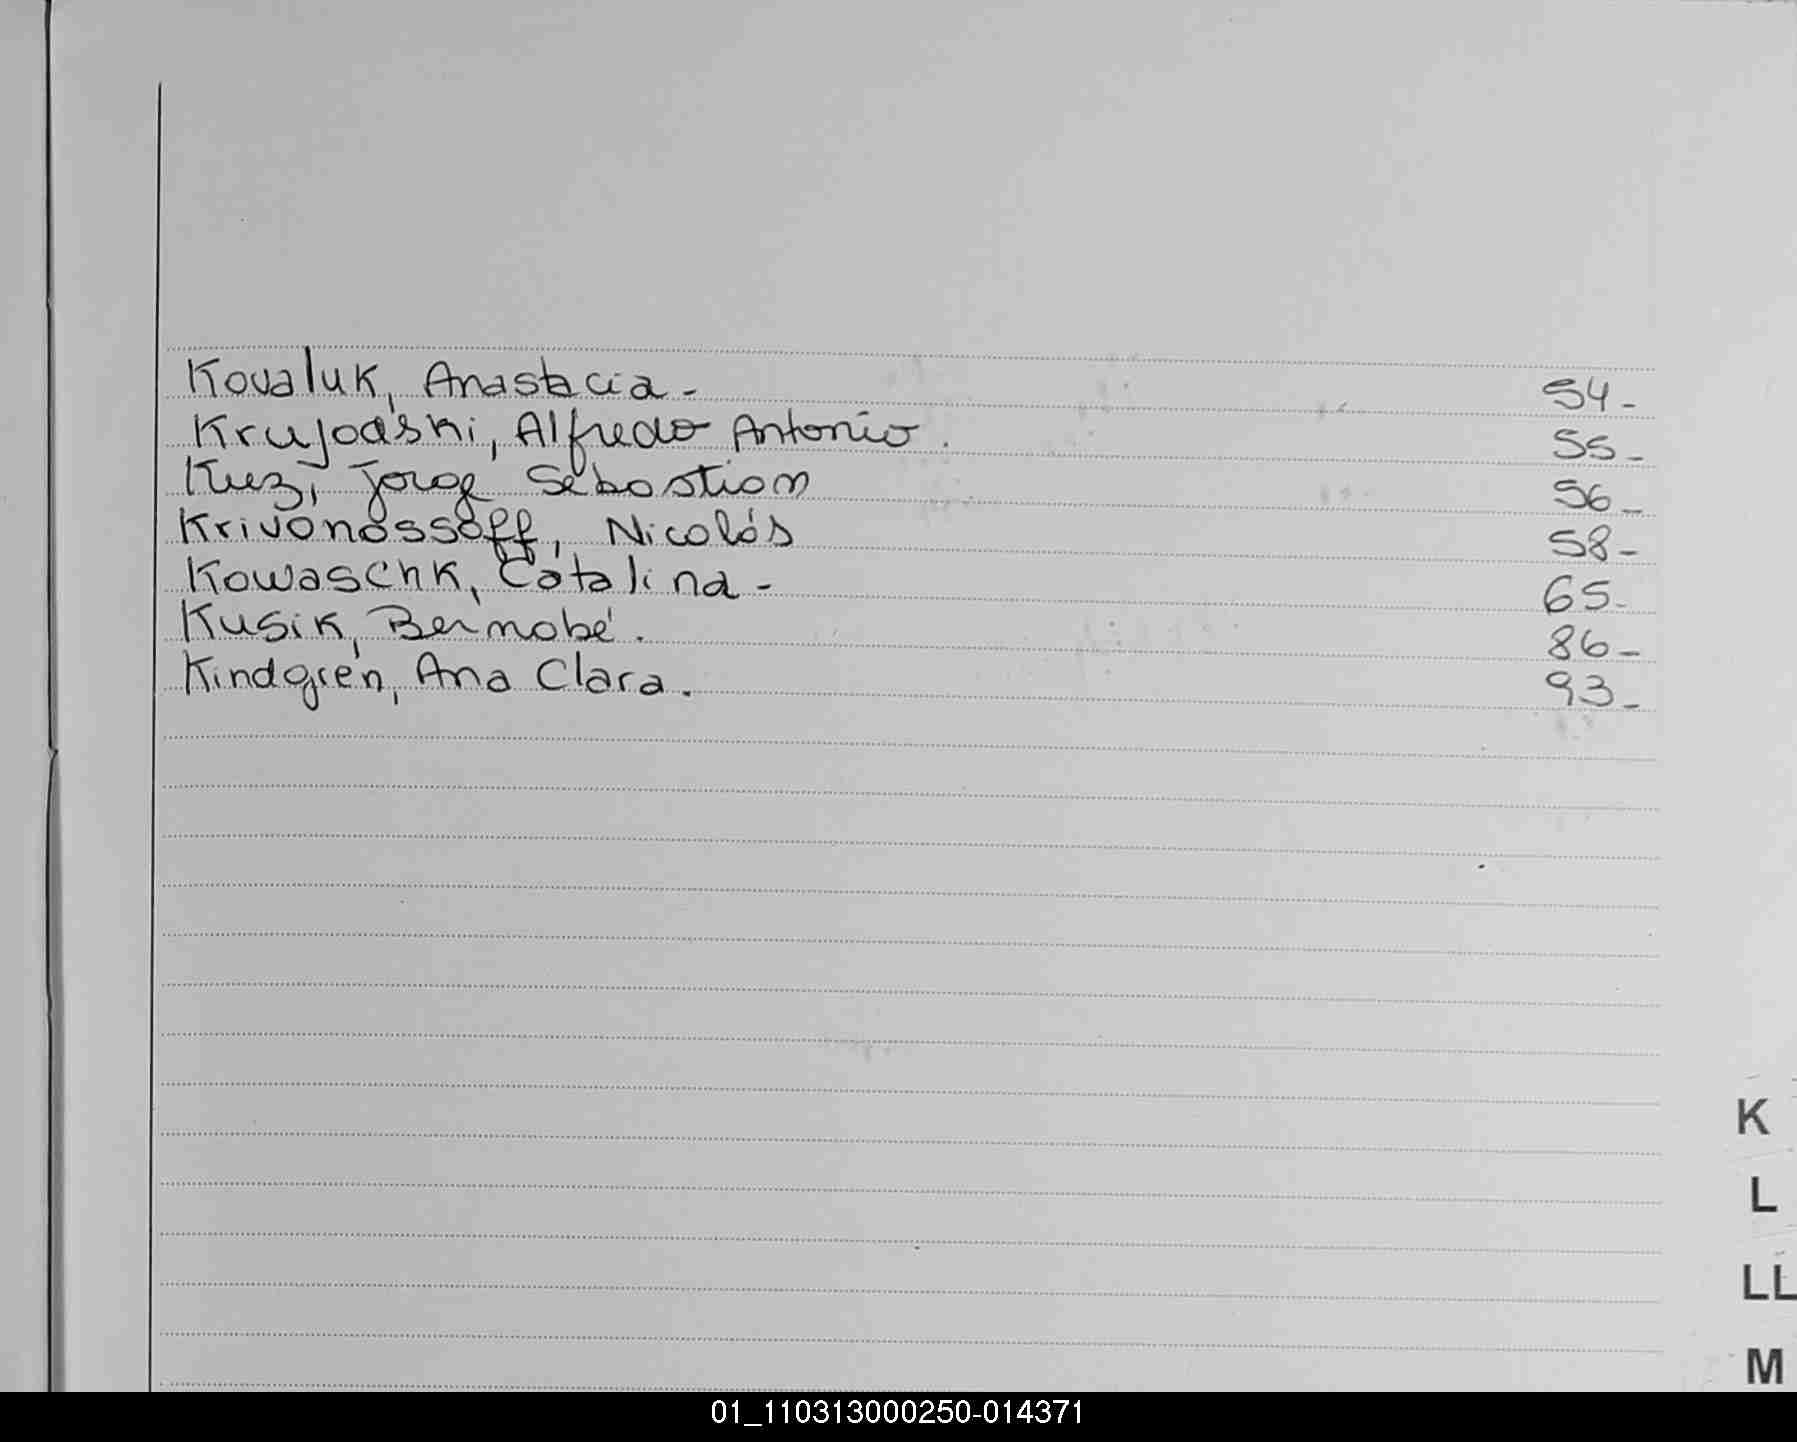 Kovaluk, Anastacia - 54-
Krujoaski, Alfredo Antonio. 55-
Kuez, Jorge Sebastian 56-
Krivonossoff, Nicolás 58-
Kowaschk, Catalina - 65-
Kusik, Bernabé. 86-
Kindgrén, Ana Clara. 93-
K
L
LL
M
01_110313000250-014371